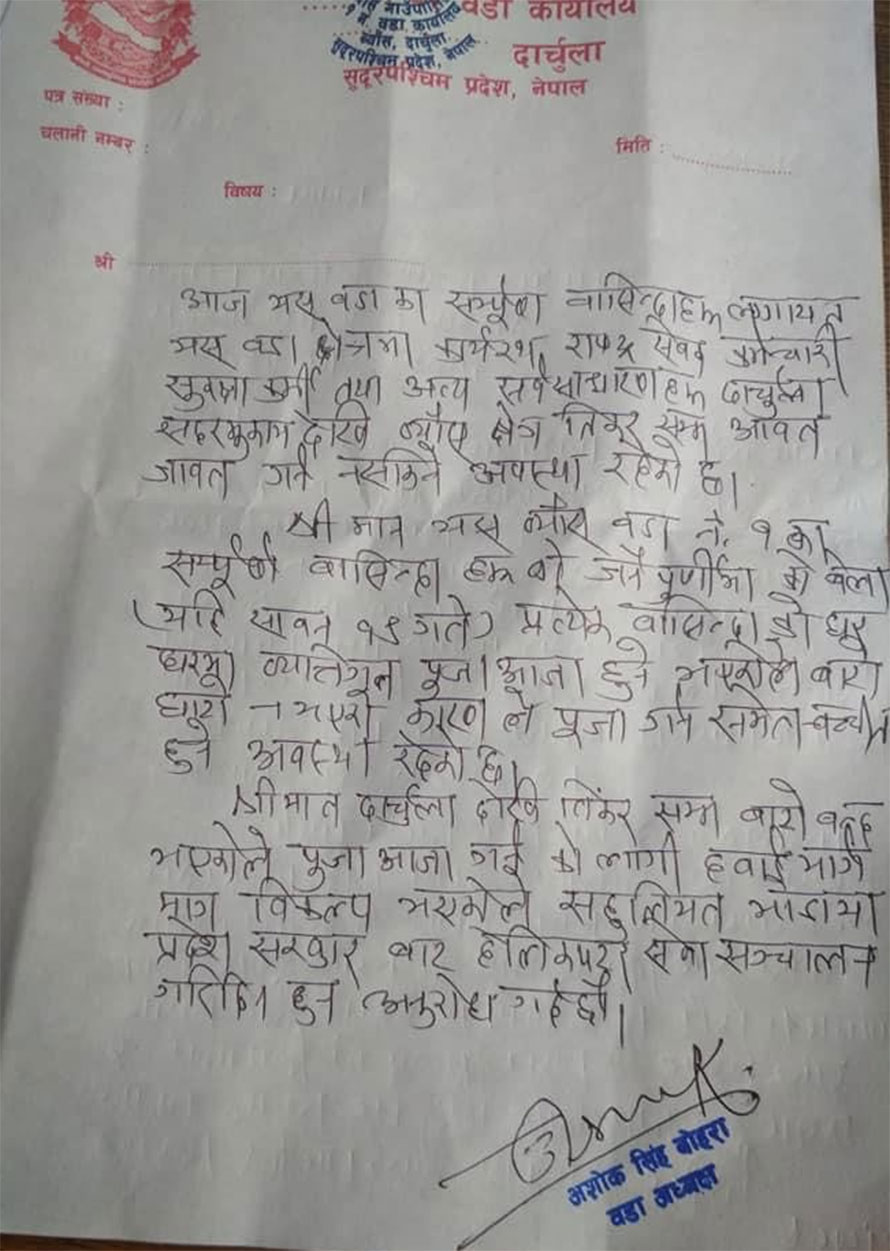 वडा कार्यालय
१ नं. वडा कार्यालय
ब्याँस, दार्चुला
सुदूरपश्चिम प्रदेश, नेपाल
दार्चुला
सुदूरपश्चिम प्रदेश, नेपाल
पत्र संख्या :
चलानी नम्बर :
मिति :
विषय :
श्री
आज यस वडा का सम्पूर्ण वासिन्दाहरू लगायत
यस वडा क्षेत्रमा कार्यरत राष्ट्र सेवक कर्मचारी
सुरक्षा कर्मी तथा अन्य सर्वसाधारण हरू दार्चुला
सदरमुकाम देखि ब्याँस क्षेत्र तिंकर सम्म आवत
जावत गर्न नसकिने अवस्था रहेको छ।
श्री मान यस ब्याँस वडा नं. १ का
सम्पूर्ण वासिन्दा हरू को जनै पूर्णीमा को बेला
(यहि सावन १८ गते) प्रत्येक वासिन्दा को घर
घरमा व्यक्तिगत पूजा आजा हुने भएकोले बाटो
घाटो नभएको कारण ले पूजा गर्न समेत बञ्चीत
हुने अवस्था रहेको छ।
श्रीमान दार्चुला देखि तिंकर सम्म बाटो बन्द
भएकोले पुजा आजा गर्न को लागी हवाई मार्ग
मात्र विकल्प भएकोले सहुलियत भाडामा
प्रदेश सरकार बाट हेलिकप्टर सेवा सञ्चालन
गरिदिन हुन अनुरोध गर्दछौं।
अशोक सिंह बोहरा
वडा अध्यक्ष